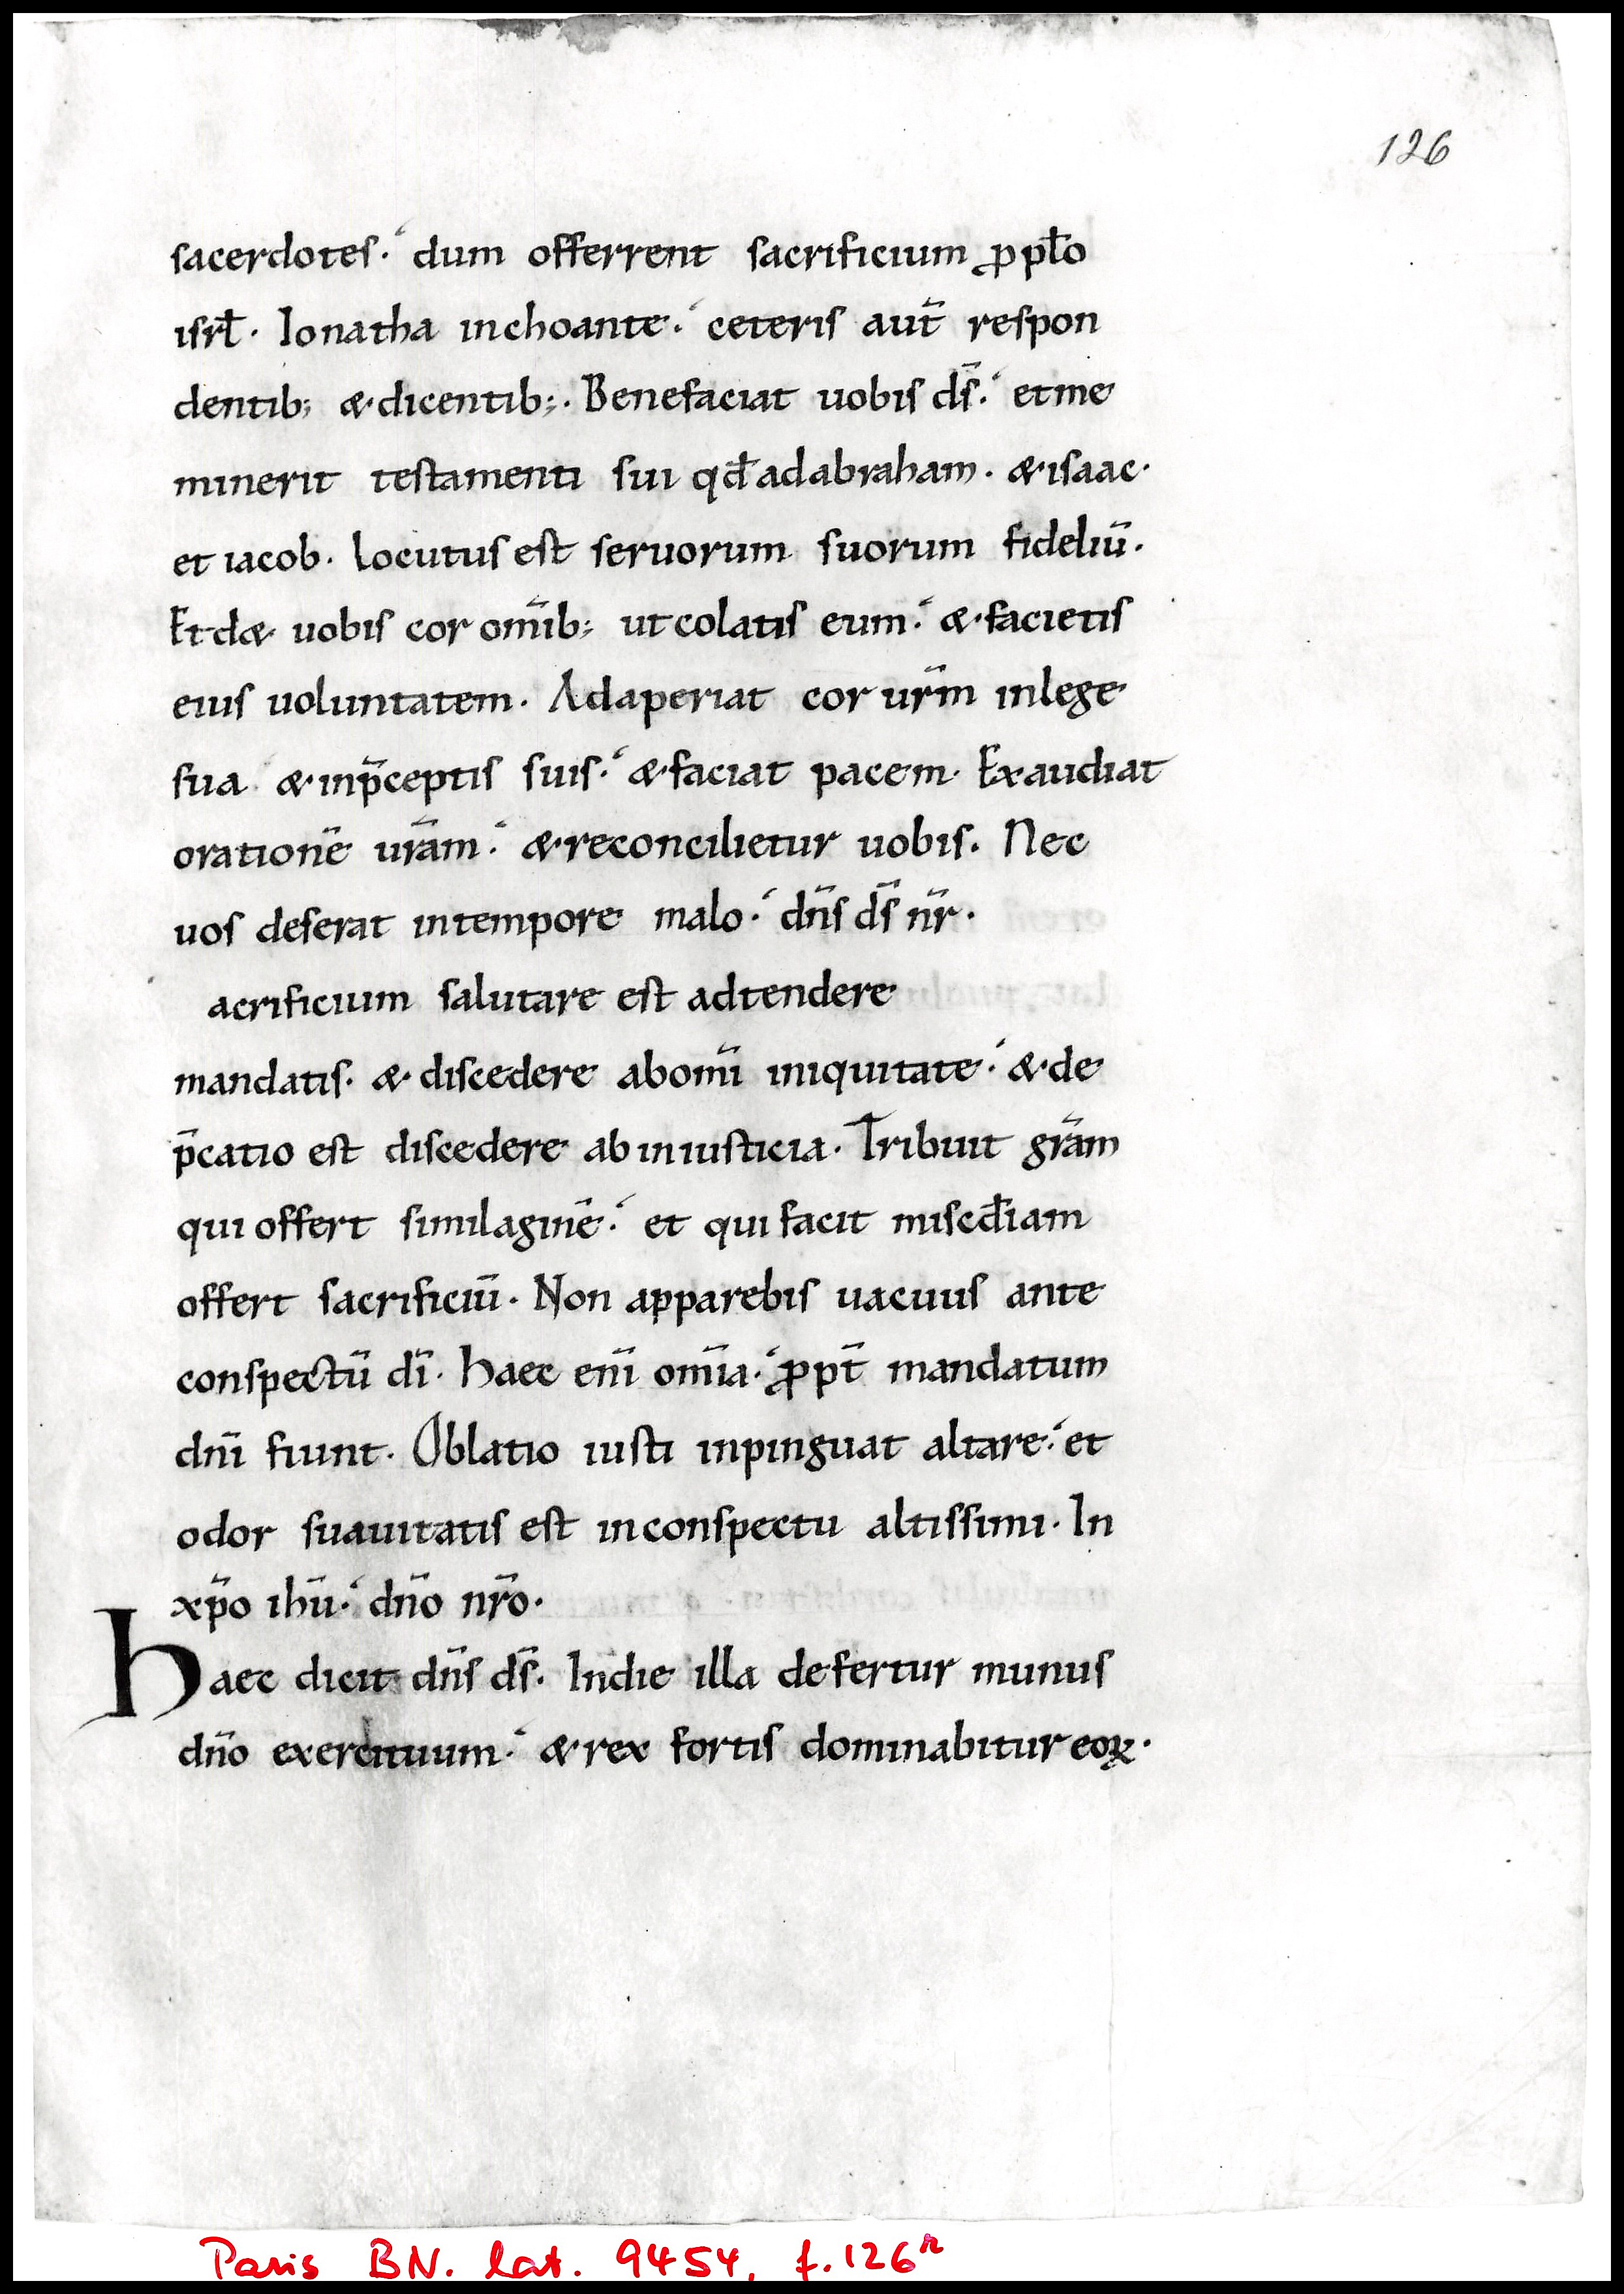 126
sacerdotes·́ dum offerrent sacrificium ꝓ pl̄o
isrl̄· Ionatha inchoante·́ ceteris aut̄ respon
dentib; & dicentib;· Benefaciat uobis ds̄·́ et me
minerit testamenti sui qd̄ ad abraham· & isaac·
et iacob· locutus est seruorum suorum fideliū·
Et d& uobis cor om̄ib; ut colatis eum·́ & facietis
eius uoluntatem· Adaperiat cor ur̄m in lege
sua & in p̄ceptis suis·́ & faciat pacem· Exaudiat
orationē urām·́ & reconcilietur uobis· Nec
uos deserat in tempore malo·́ dn̄s ds̄ nr̄·
acrificium salutare est adtendere
mandatis· & discedere ab om̄i iniquitate·́ & de
p̄catio est discedere ab iniusticia· Tribuit grām
qui offert similaginē·́ et qui facit miscd̄iam
offert sacrificiū· Non apparebis uacuus ante
conspectū dī· haec enī om̄ia·́ ꝓpt̄ mandatum
dn̄i fiunt· Oblatio iusti inpinguat altare·́ et
odor suauitatis est in conspectu altissimi· In
xp̄o ihū·́ dn̄o nr̄o·
haec dicit dn̄s ds̄· In die illa defertur munus
dn̄o exercituum·́ & rex fortis dominabitur eoꝝ·
Paris BN. lat. 9454, f. 126r